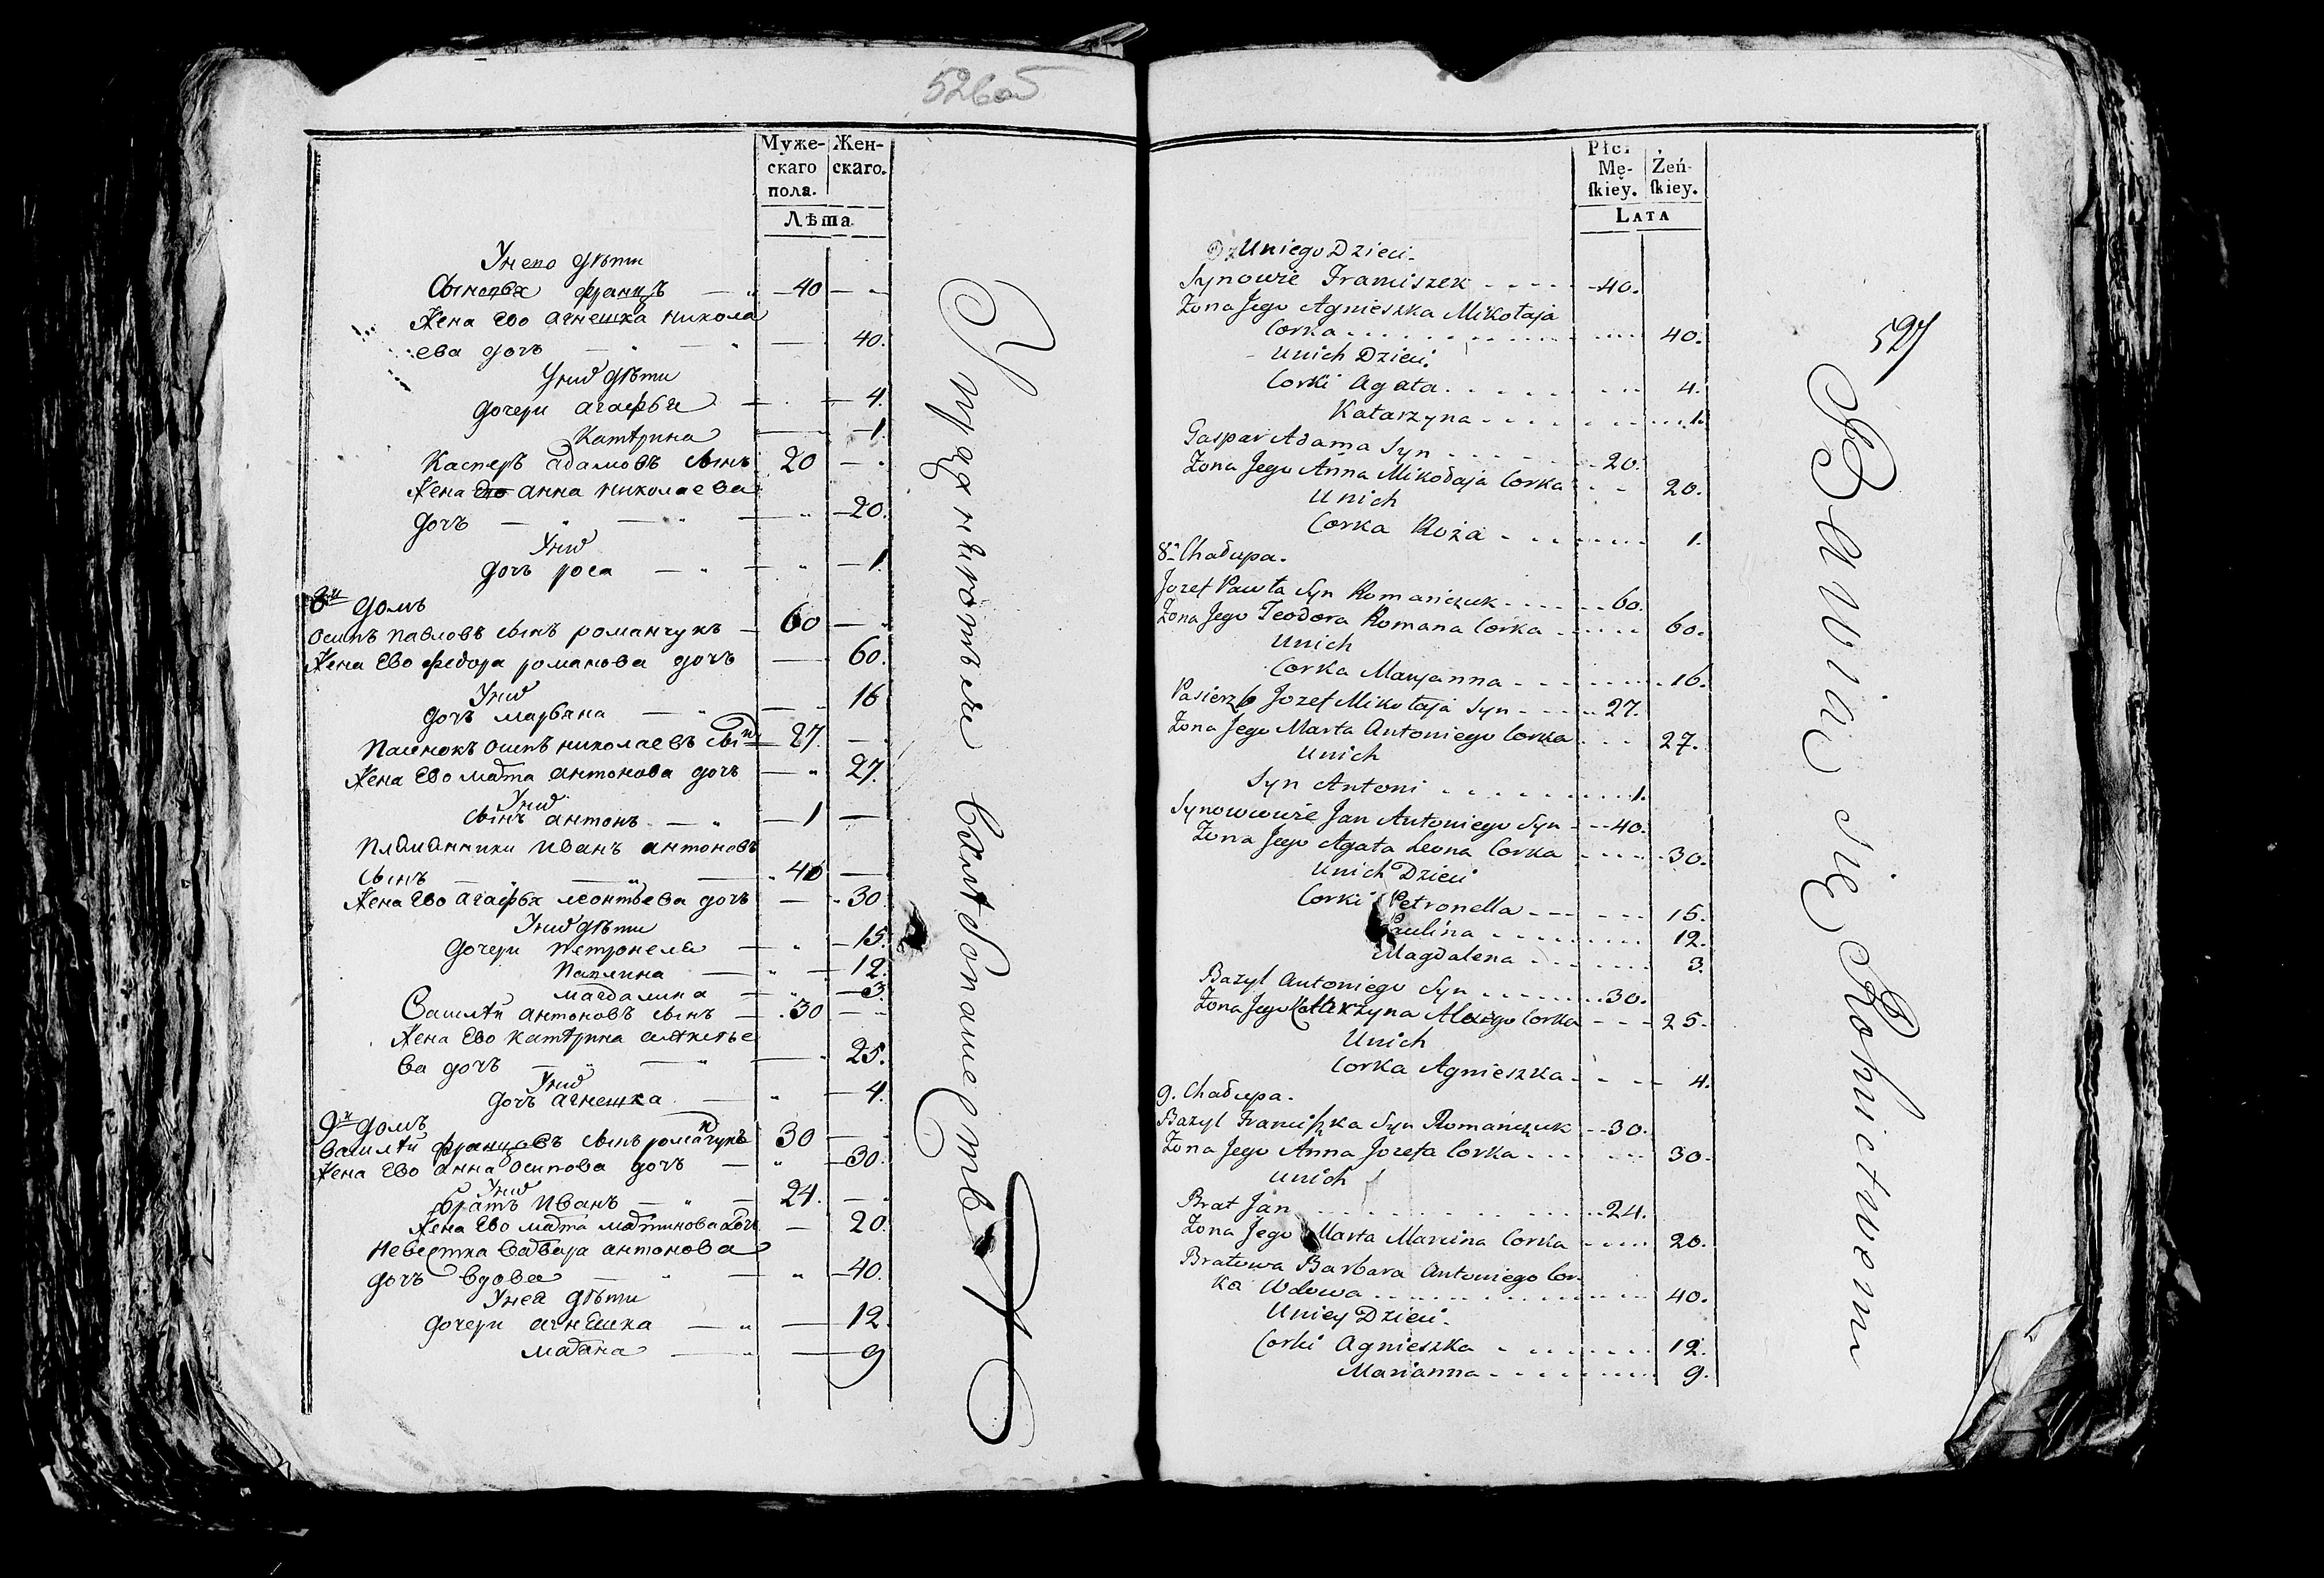 526об
Муже-
скаго
пола.
Жен-
скаго.
Лѣта.
Унего дѣти
Сыновья францъ — 40
Жена Ево агнешка никола
ева дочь — 40.
Уних дѣти
дочери агафья — 4.
Катрина — 1.
Касперъ адамовъ сынъ 20
Жена Ево анна николаева
дочь — 20.
Уних
дочь роса — 1.
8й домъ
осипъ павловъ сынъ романчукъ — 60
Жена Ево федора романова дочь — 60.
Уних
дочь марьяна — 16
пасинокъ осипъ николаевъ сынъ 27.
Жена Ево марта антонова дочь — 27.
Уних
сынъ антонъ — 1
племянники иванъ антоновъ
сынъ — 40
Жена Ево агафья леонтьева дочь — 30.
Уних дѣти
дочери петронела — 15.
паулина — 12.
магдалина — 3.
Василѣй антоновъ сынъ — 30
Жена Ево катѣрина алексѣе
ва дочь — 25.
Уних
дочь агнешка — 4.
9й домъ
василѣй францовъ сынъ романчукъ 30
Жена Ево анна осипова дочь — 30.
Уних
братъ иванъ — 24.
Жена Ево марта мартинова дочь — 20.
невестка варвара антонова
дочь вдова — 40.
Унея дѣти
дочери агнешка — 12.
марьяна — 9
Упражняются въ хлебопашествѣ
Płci
Mę-
ſkiey.
Żeń-
ſkiey.
LATA
527
Uniego Dzieci.
Synowie Franciszek - - - - 40.
Zona Jego Agnieszka Mikołaja
Corka . . . . 40.
Unich Dzieci.
Corki Agata . . . . 4.
Katarzyna . . . . 1.
Gaspar Adama Syn . . . . 20.
Zona Jego Anna Mikołaja Corka - - 20.
Unich
Corka Roża . . . . 1.
8. Chałupa.
Jozef Pawła Syn Romańczuk . . . . 60.
Zona Jego Teodora Romana Corka . . . . 60.
Unich
Corka Maryanna . . . . 16.
Pasierzb Jozef Mikołaja Syn . . . . 27.
Zona Jego Marta Antoniego Corka . . . 27.
Unich
Syn Antoni . . . . 1.
Synowcowie Jan Antoniego Syn - - 40.
Zona Jego Agata Leona Corka . . . . 30.
Unich Dzieci
Corki Petronella . . . . 15.
Paulina . . . . 12.
Magdalena . . . . 3.
Bazyl Antoniego Syn . . . . 30.
Zona Jego Katarzyna Alexego Corka - - - 25.
Unich
Corka Agnieszka . . . . 4.
9. Chałupa.
Bazyl Franciszka Syn Romańczuk - - 30.
Zona Jego Anna Jozefa Corka . . . . 30.
Unich
Brat Jan . . . . 24.
Zona Jego Marta Marcina Corka . . . . 20.
Bratowa Barbara Antoniego Cor-
ka Wdowa . . . . 40.
Uniey Dzieci.
Corki Agnieszka . . . . 12.
Marianna . . . . 9.
Bawią się Rolnictwem